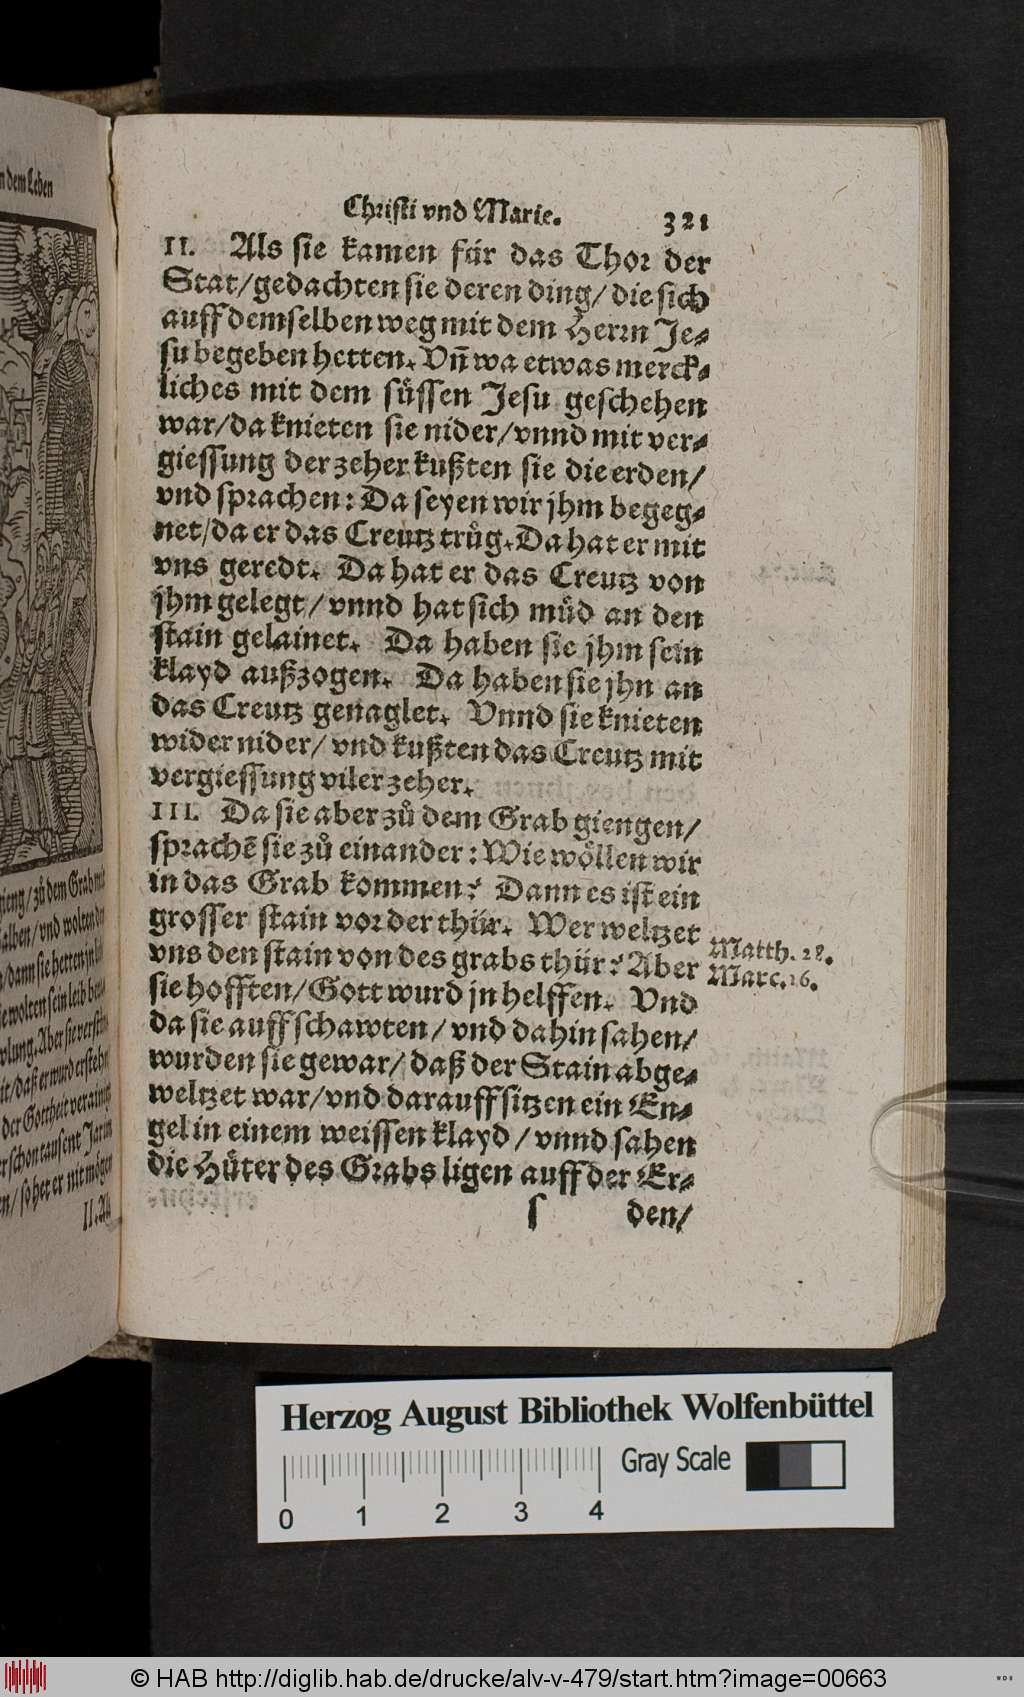 n dem Leben
gieng/ zů dem Grab mit
salben/ vnd wolten den
/ dann sie hetten jn lieb
wolten sein leib
Aber sie
daß er wurd erstehen
der Gottheit verainigt
schon tausent Jar im
so het er nit mögen
II. Als
Christi vnd Marie. 321
II. Als sie kamen für das Thor der
Stat/ gedachten sie deren ding/ die sich
auff demselben weg mit dem Herrn Je⸗
su begeben hetten. Vñ wa etwas merck⸗
liches mit dem süssen Jesu geschehen
war/ da knieten sie nider/ vnnd mit ver⸗
giessung der zeher kußten sie die erden/
vnd sprachen: Da seyen wir jhm begeg⸗
net/ da er das Creutz trůg. Da hat er mit
vns geredt. Da hat er das Creutz von
jhm gelegt/ vnnd hat sich můd an den
stain gelainet. Da haben sie jhm sein
klayd außzogen. Da haben sie jhn an
das Creutz genaglet. Vnnd sie knieten
wider nider/ vnd kußten das Creutz mit
vergiessung viler zeher.
III. Da sie aber zů dem Grab giengen/
sprachē sie zů einander: Wie wöllen wir
in das Grab kommen? Dann es ist ein
grosser stain vor der thür. Wer weltzet
vns den stain von des grabs thür? Aber
sie hofften/ Gott wurd jn helffen. Vnd
da sie auff schawten/ vnd dahin sahen/
wurden sie gewar/ daß der Stain abge⸗
weltzet war/ vnd darauff sitzen ein En⸗
gel in einem weissen klayd/ vnnd sahen
die Hüter des Grabs ligen auff der Er⸗
s den/
Matth. 28.
Marc. 16.
Herzog August Bibliothek Wolfenbüttel
Gray Scale
0 1 2 3 4
© HAB http://diglib.hab.de/drucke/alv-v-479/start.htm?image=00663